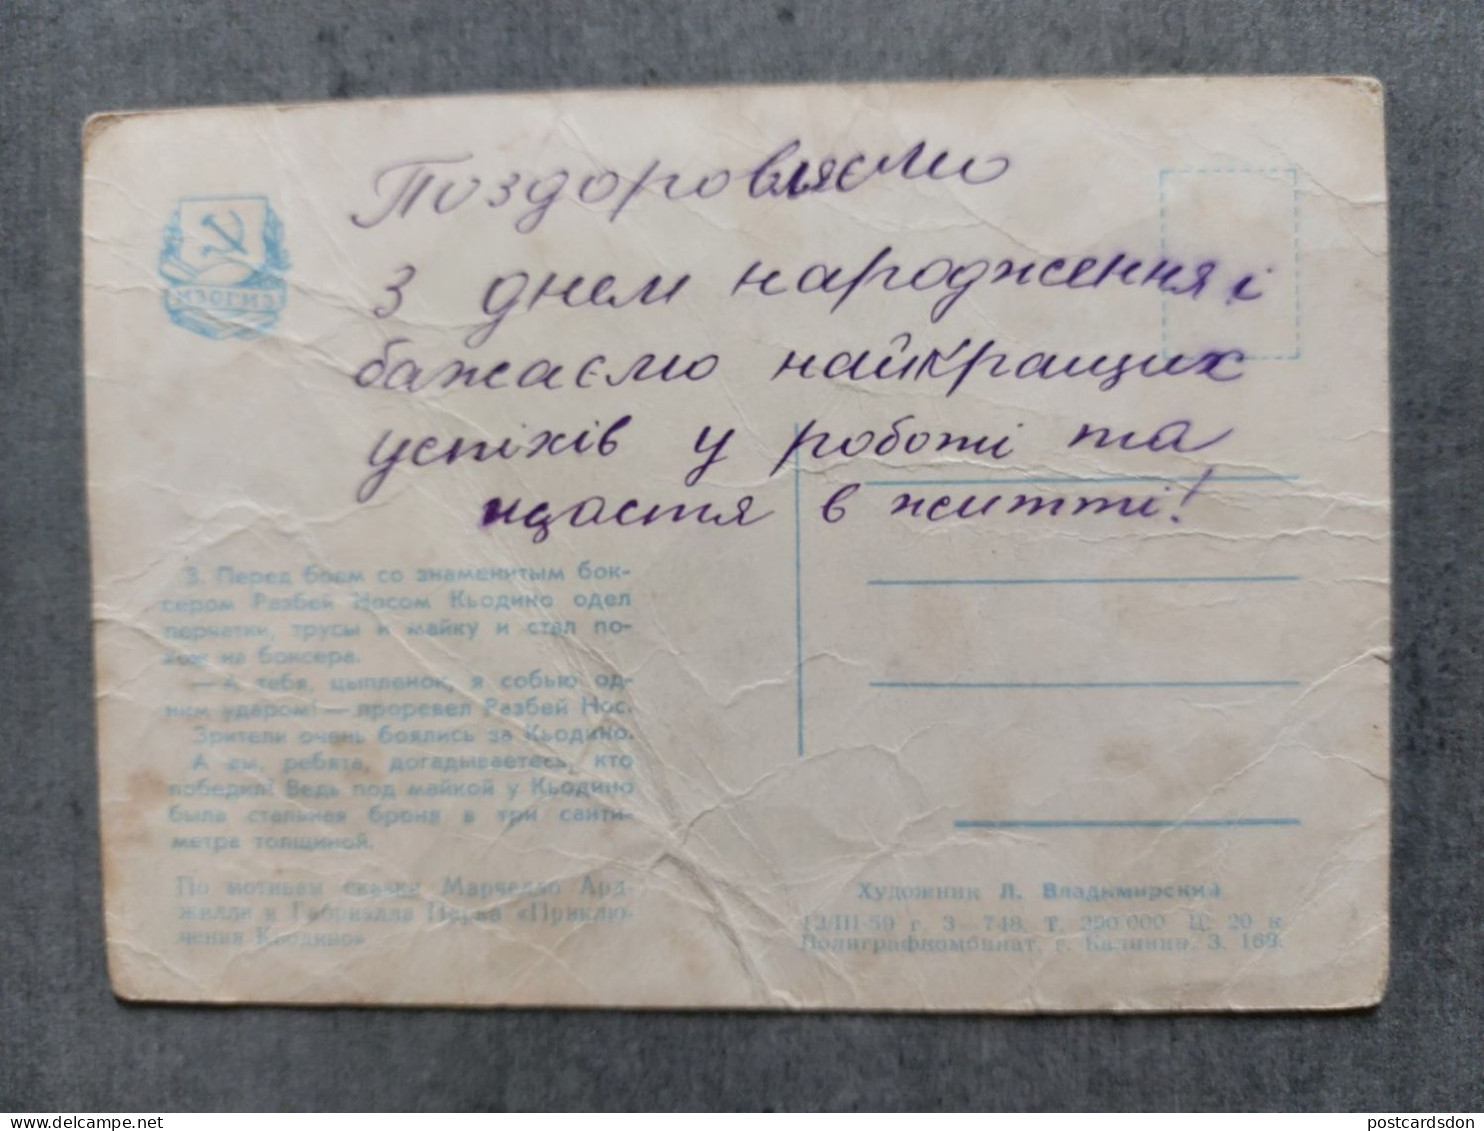 ИЗОГИЗ
Поздоровляємо
З днем народження і
бажаємо найкращих
успіхів у роботі та
щастя в житті!
3. Перед боем со знаменитым бок-
сером Разбей Носом Кьодино одел
перчатки, трусы и майку и стал по-
хож на боксера.
— А тебя, цыпленок, я собью од-
ним ударом! — проревел Разбей Нос.
Зрители очень боялись за Кьодино.
А вы, ребята, догадываетесь, кто
победил? Ведь под майкой у Кьодино
была стальная броня в три санти-
метра толщиной.
По мотивам сказки Марчелло Ард-
жилли и Габриэлла Парка «Приклю-
чения Кьодино»
Художник Л. Владимирский
12/III-59 г. З—748. Т. 290 000 Ц. 20 к
Полиграфкомбинат, г. Калинин. З. 169.
postcardsdon